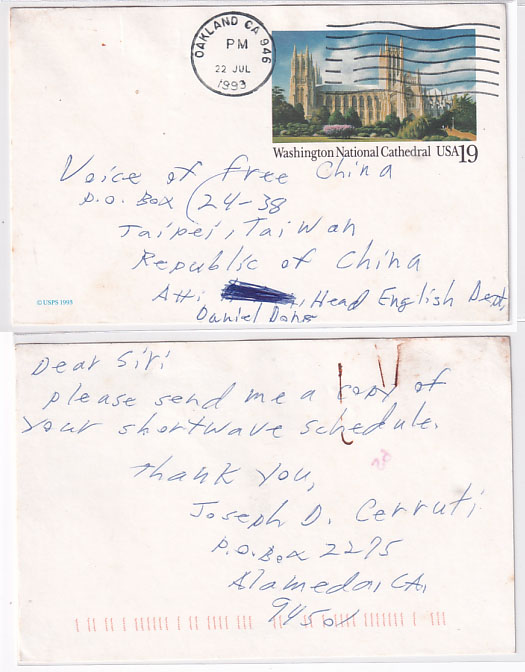 OAKLAND CA 946
PM
22 JUL
1993
Washington National Cathedral USA 19
Voice of Free China
P.O. Box 24-38
Taipei, Taiwan
Republic of China
Att: , Head English Dept,
Daniel
© USPS 1993
Dear Sir:
please send me a copy of
your shortwave schedule.
Thank you,
Joseph D. Cerruti
P.O. Box 2275
Alameda, CA.